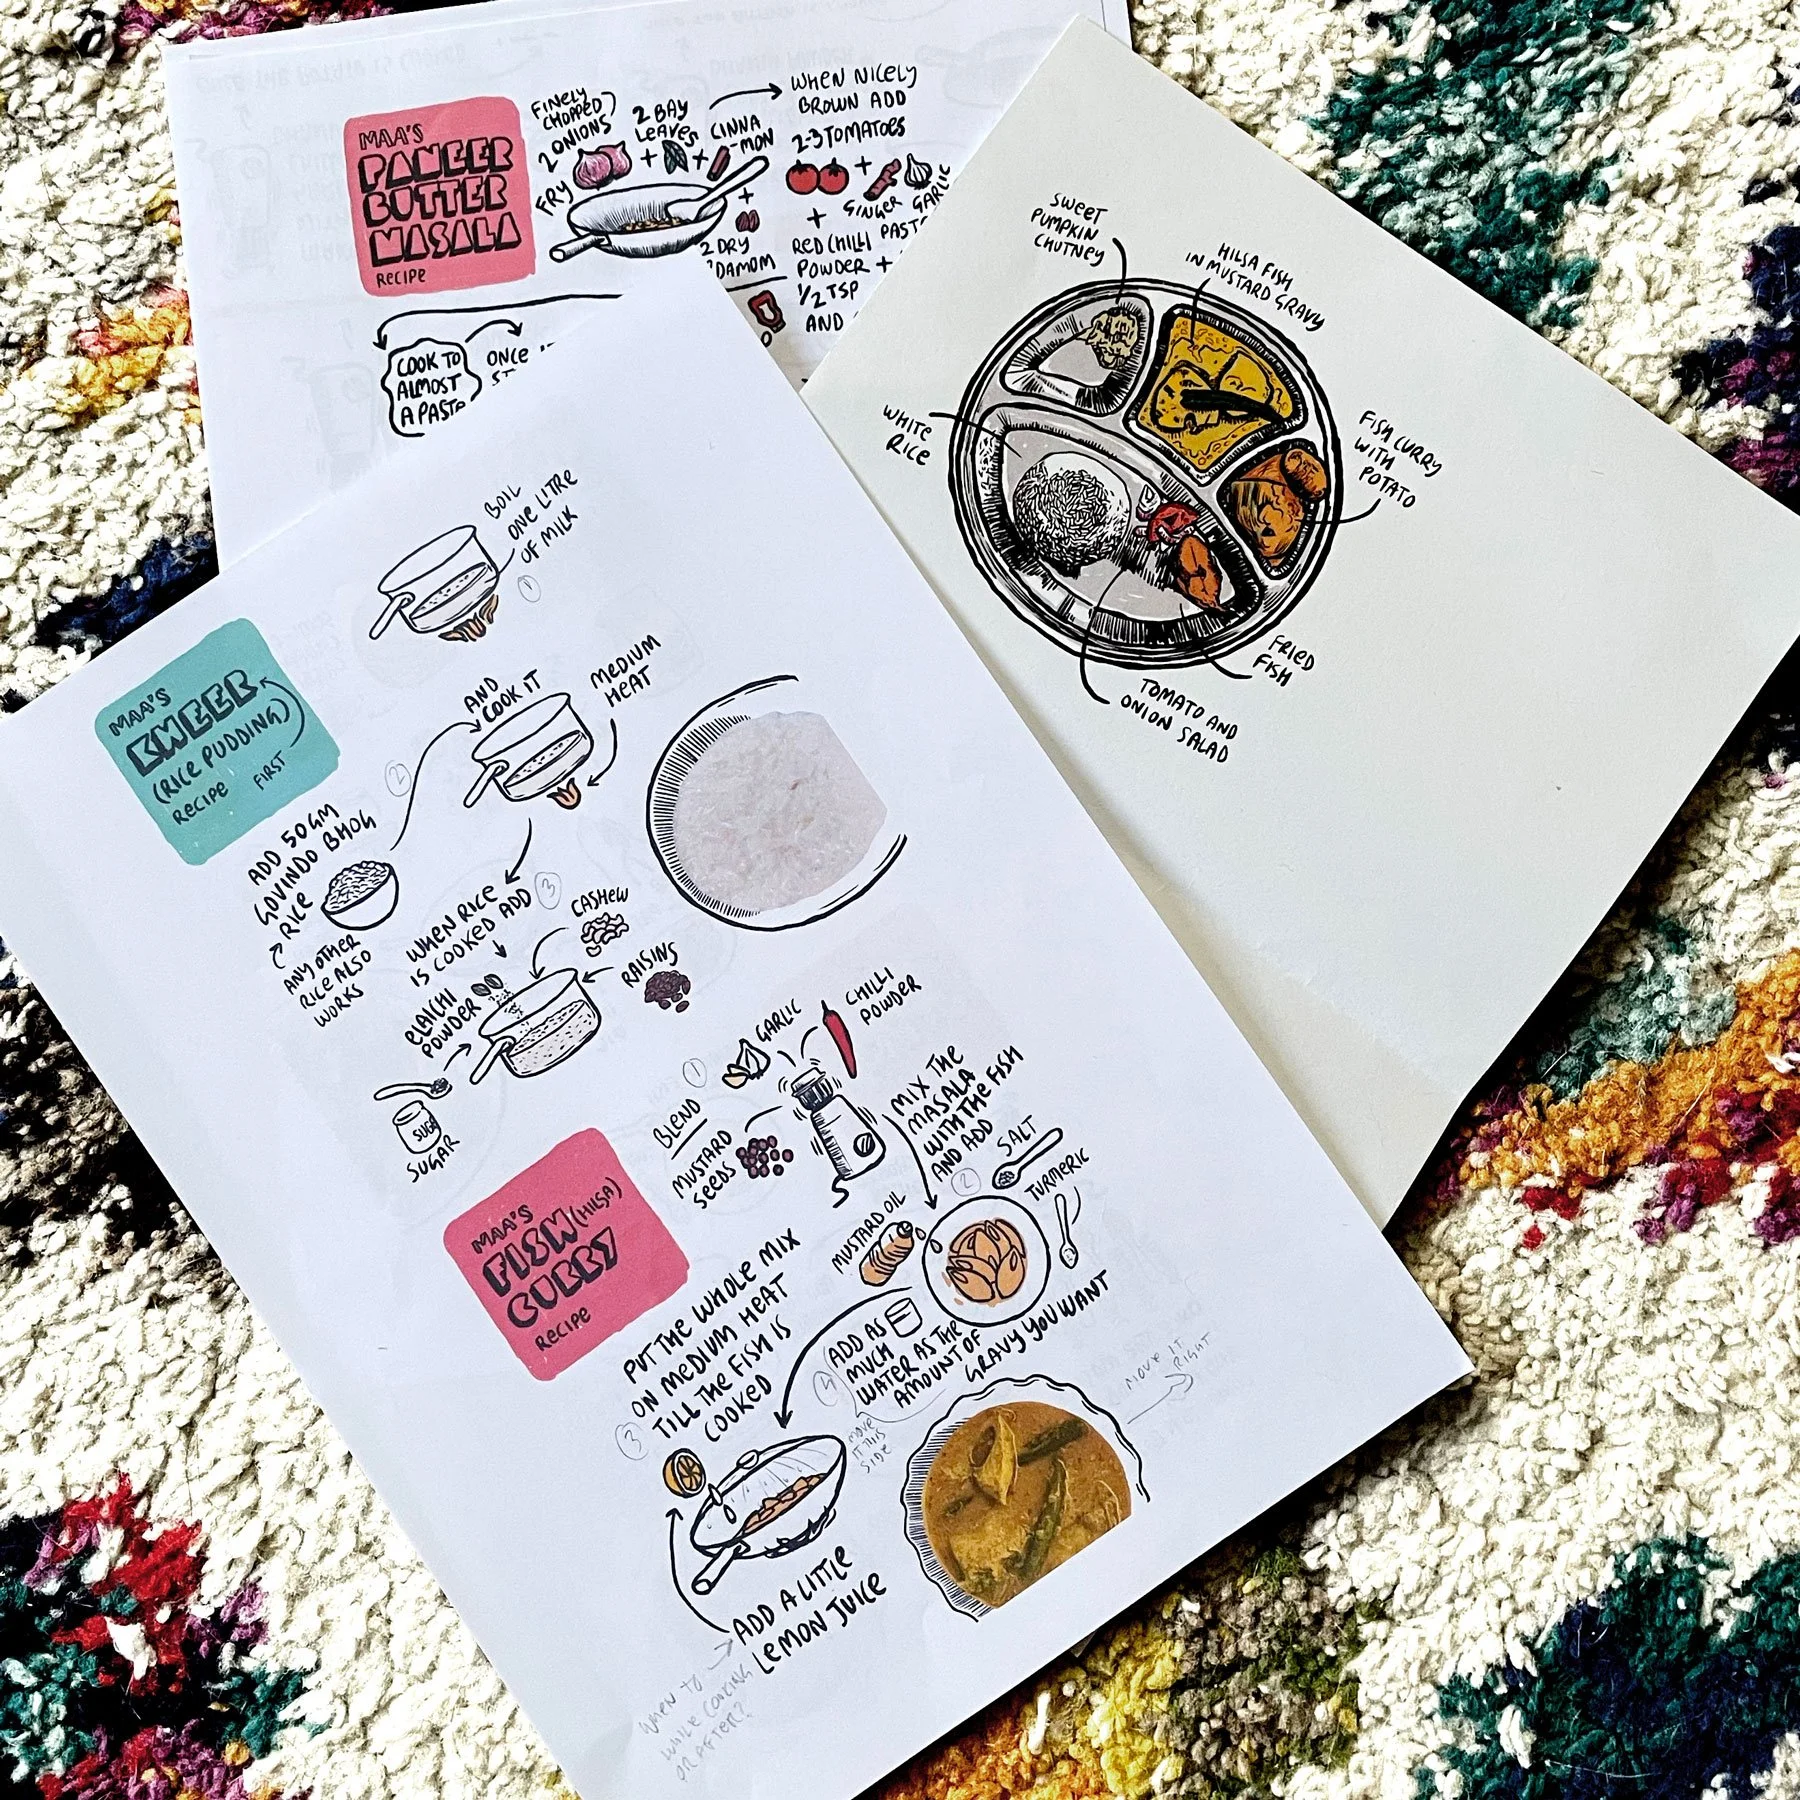 MAA'S
PANEER
BUTTER
MASALA
RECIPE
FRY
2 ONIONS
FINELY
CHOPPED
2 BAY
LEAVES
CINNA
-MON
2 DRY
DAMOM
WHEN NICELY
BROWN ADD
2-3 TOMATOES
GINGER GARLIC
PAST
RED CHILLI
POWDER +
1/2 TSP
AND
COOK TO
ALMOST
A PASTE
ONCE
SWEET
PUMPKIN
CHUTNEY
HILSA FISH
IN MUSTARD GRAVY
WHITE
RICE
FISH CURRY
WITH
POTATO
FRIED
FISH
TOMATO AND
ONION SALAD
MAA'S
KHEER
(RICE PUDDING)
RECIPE
FIRST
BOIL
ONE LITRE
OF MILK
1
ADD 50GM
GOVINDO BHOG
RICE
ANY OTHER
RICE ALSO
WORKS
2
AND
COOK IT
MEDIUM
HEAT
WHEN RICE
IS COOKED ADD
3
CASHEW
RAISINS
ELAICHI
POWDER
SUGAR
MAA'S
FISH (HILSA)
CURRY
RECIPE
1
BLEND
GARLIC
CHILLI
POWDER
MUSTARD
SEEDS
MIX THE
MASALA
WITH THE FISH
AND ADD
2
SALT
TURMERIC
MUSTARD OIL
PUT THE WHOLE MIX
ON MEDIUM HEAT
TILL THE FISH IS
COOKED
3
ADD AS
MUCH
WATER AS THE
AMOUNT OF
GRAVY YOU WANT
MOVE
IT THIS
SIDE
MOVE IT
RIGHT
ADD A LITTLE
LEMON JUICE
WHEN TO
WHILE COOKING
OR AFTER?